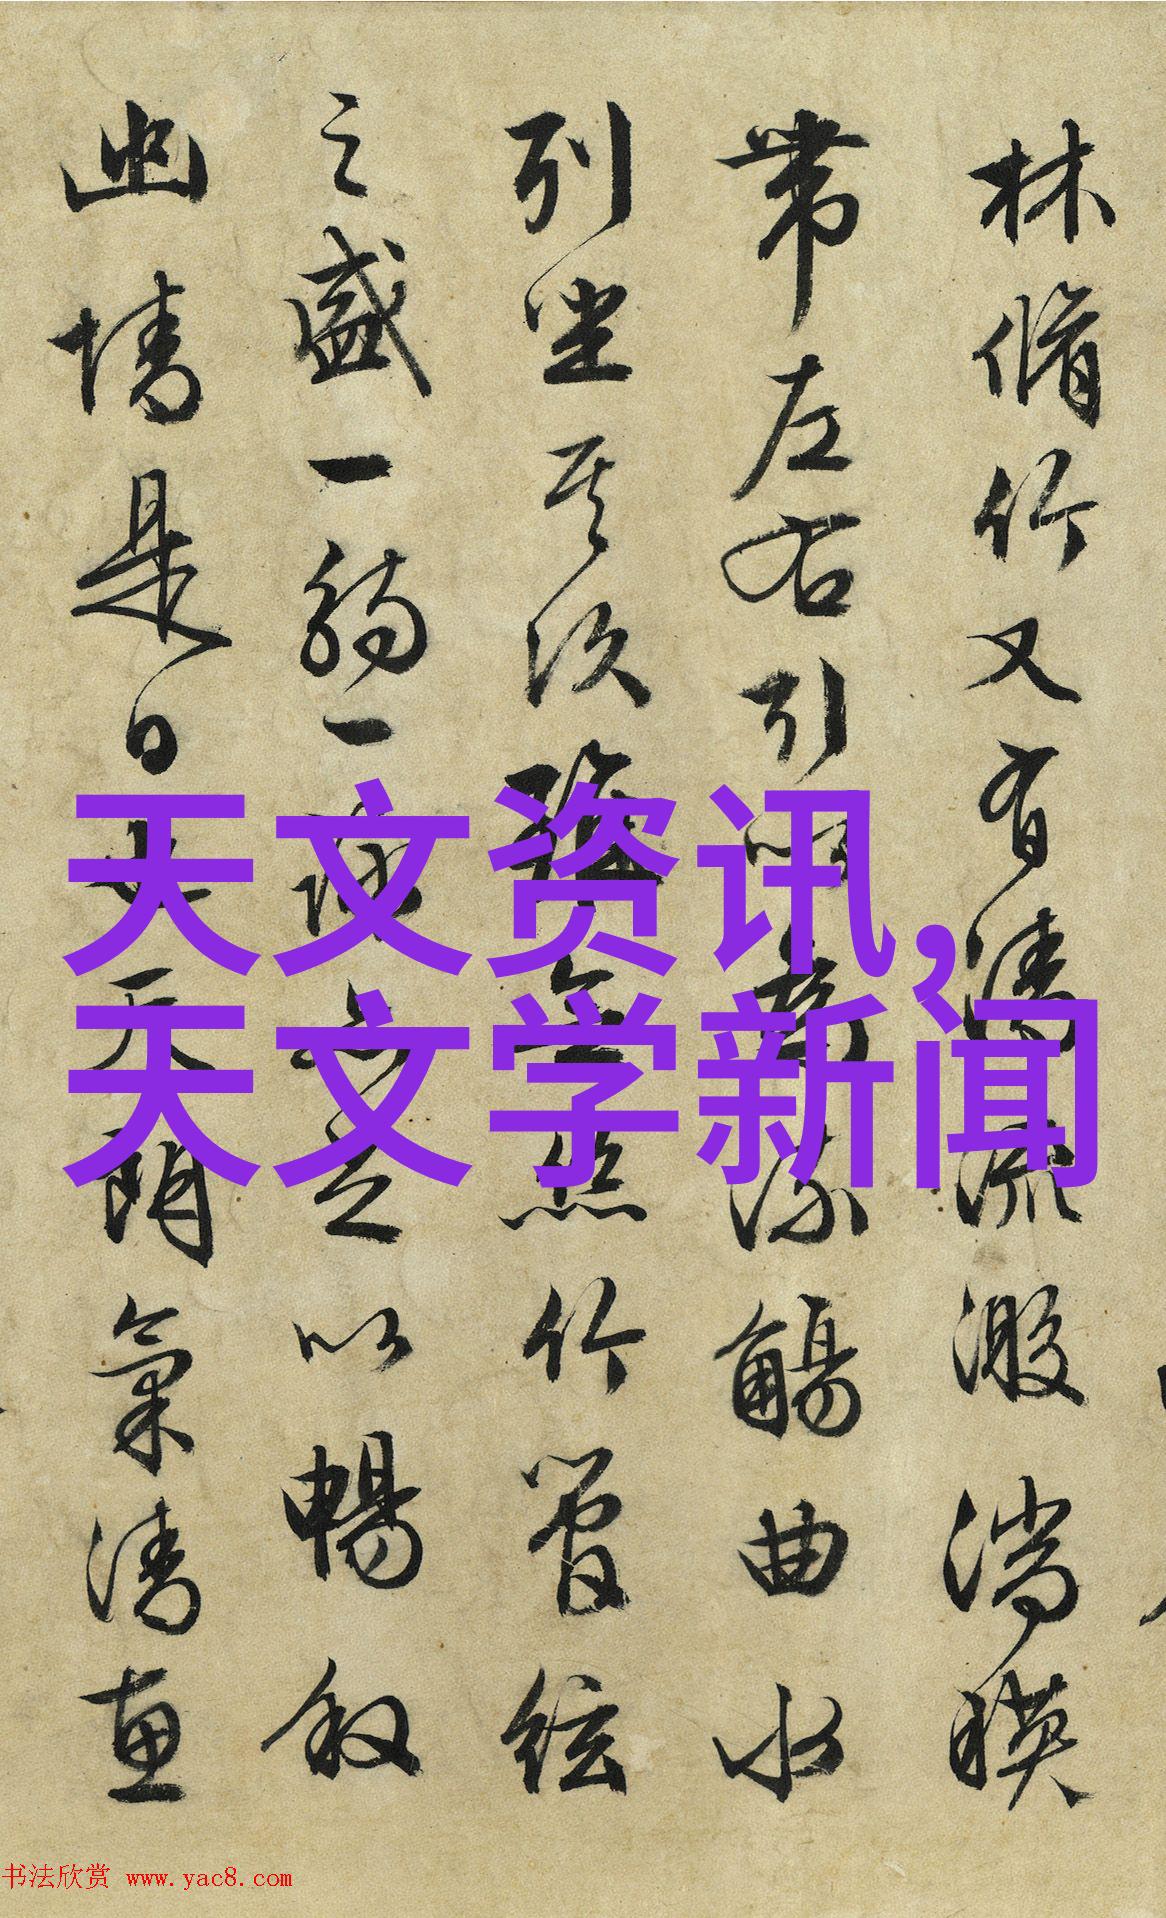 林脩竹又有清流激湍暎
帶左右引以為流觴曲水
列坐其次雖無絲竹管絃
之盛一觴一詠亦足以暢敘
幽情是日也天朗氣清惠
天文资讯,
天文学新闻
书法欣赏 www.yac8.com